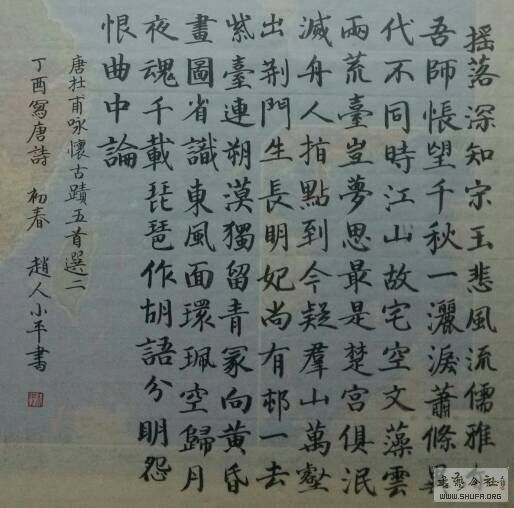 搖落深知宗玉悲風流儒雅亦
吾師悵望千秋一灑淚蕭條異
代不同時江山故宅空文藻雲
雨荒臺豈夢思最是楚宮俱泯
滅舟人指點到今疑羣山萬壑
出荆門生長明妃尚有邨一去
紫臺連朔漠獨留青冢向黄昏
畫圖省識東風面環珮空歸月
夜魂千載琵琶作胡語分明怨
恨曲中論
唐杜甫咏懷古蹟五首選二
丁酉寫唐詩 初春 趙人小平書
書藝公社
WWW.SHUFA.ORG